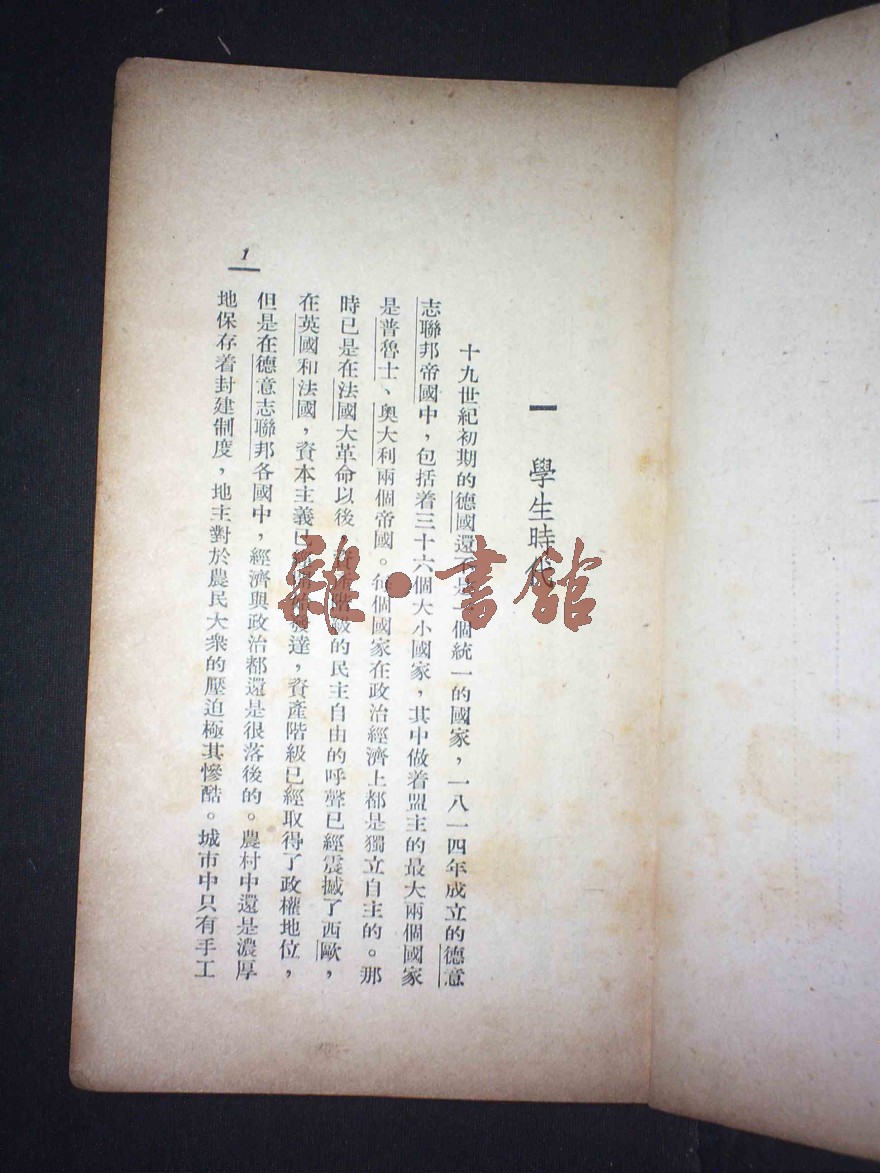 一 學生時代
十九世紀初期的德國還不是一個統一的國家，一八一四年成立的德意
志聯邦帝國中，包括着三十六個大小國家，其中做着盟主的最大兩個國家
是普魯士、奧大利兩個帝國。每個國家在政治經濟上都是獨立自主的。那
時已是在法國大革命以後，資產階級的民主自由的呼聲已經震撼了西歐，
在英國和法國，資本主義已經開始發達，資產階級已經取得了政權地位，
但是在德意志聯邦各國中，經濟與政治都還是很落後的。農村中還是濃厚
地保存着封建制度，地主對於農民大衆的壓迫極其慘酷。城市中只有手工
1
雜·書館